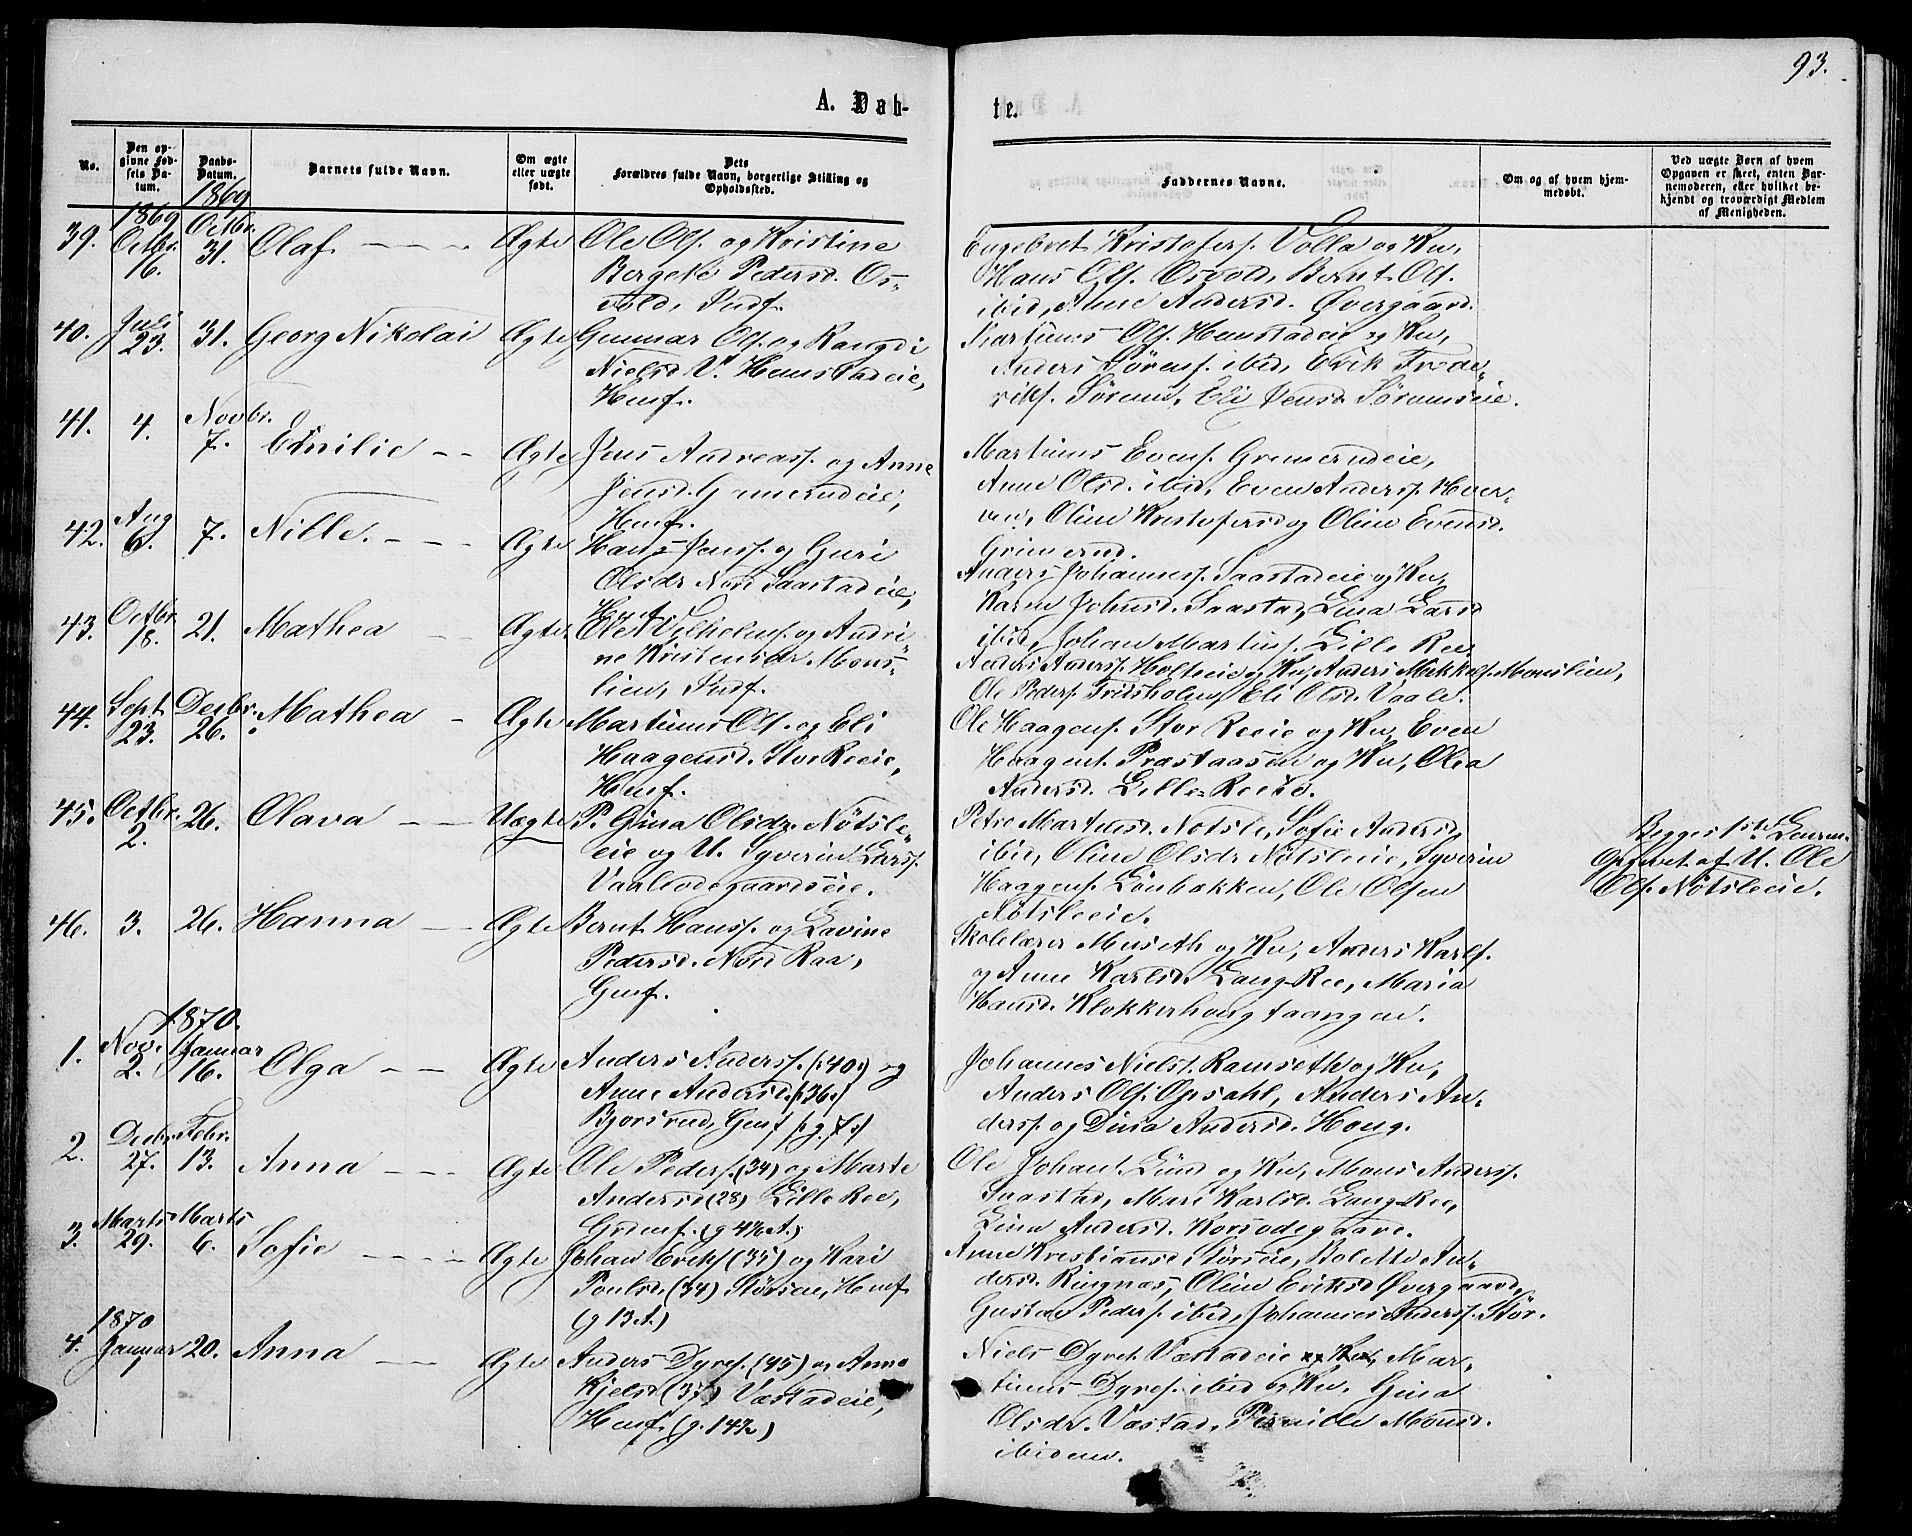 93.
A. Døb-
te.
No.
Den op-
givne Fød-
sels Da-
tum.
Daabs-
Datum.
Barnets fulde Navn.
Om ægte
eller uægte
født.
Dets
Forældres fulde Navn, borgerlige Stilling og
Opholdssted.
Faddernes Navne.
Om og af hvem hjem-
medøbt.
Ved uægte Børn af hvem
Opgaven er skeet, enten Bar-
nemoderen, eller hvilket be-
kjendt og troværdigt Medlem
af Menigheden.
1869
1869
39.
Octbr.
16.
Octbr.
31.
Olaf
Ægte
Ole Ols. og Kristine
Bergete Pedersd. Os-
vold, Indf.
Engebret Kristofers. Volla og Ku,
Hans Ols. Osvold, Bernt Ols.
ibid, Anne Andersd. Øvergaard.
40.
Juli
23.
31.
Georg Nikolai
Ægte
Gunnar Ols. og Rangdi
Nielsd. V. Hemstadeie,
Husf.
Martinus Ols. Hemstadeie og Ku,
Anders Sörens. ibid, Erik Frede-
riks. Sörum, Eli Jensd. Sörumseie.
41.
4.
Novbr.
7.
Emilie
Ægte
Jens Andreass. og Anne
Jensd. Grimerudeie,
Husf.
Martinus Evens. Grimerudeie,
Anne Olsd. ibid, Even Anders. Hver-
ven, Oline Kristofersd og Oline Evensd.
Grimerud.
42.
Aug
6.
7.
Nille.
Ægte
Hans Jenss. og Guri
Olsdr Nord Saastadeie,
Husf.
Anders Johanness. Saastadeie og Ku,
Karen Johnsd. Saastad, Lina Larsd
ibid, Johan Martins. Lille Ree
43.
Octbr.
18.
21.
Mathea
Ægte
Ole Vilhelms. og Andri-
ne Kristensdr Mons-
lien, Indf.
Anders Anderss. Holtseie og Ku, Anders Mikkels. Monslien,
Ole Peders. Fridsholm, Eli Olsd. Vaale.
44.
Sept.
23.
Decbr.
26.
Mathea
Ægte
Martinus Ols. og Eli
Haagensd. Stor Reeie,
Husf.
Ole Haagens. Stor Reeie og Ku, Even
Haagens. Præstaasen og Ku, Olea
Andersd. Lille Reeie.
45.
Octbr.
2.
26.
Olava
Uægte
P. Gina Olsdr. Nötsle-
eie og U. Syverin Larss.
Vaaleodegaardseie.
Petra Martinsd. Nötsle, Sofie Andersd
ibid, Oline Olsdr Nötsleeie, Syverin
Haagens. Lönbakken, Ole Olsen
Nötsleeie.
Begges 1ste Leierm.
Opgivet af U. Ole
Ols. Nötsleeie.
46.
3.
26.
Hanna
Ægte
Bernt Hanss. og Lavine
Pedersd. Nord Raa,
Gmf.
Skolelærer Museth og Ku, Anders Karls.
og Anne Karlsd. Lang Ree, Maria
Hansd. Klokkerhaugtaangen.
1870.
1.
Nov.
2.
Januar
16.
Olga
Ægte
Anders Anderss. (40) og
Anne Andersd. (36)
Bjorsrud, Gmf (g. 7)
Johannes Niels. Ramseth og Ku,
Anders Ols. Opsahl, Anders An-
derss. og Dina Andersd. Houg.
2.
Decbr.
27.
Febr.
13.
Anna
Ægte
Ole Peders. (34) og Marte
Andersd (28) Lille Ree,
Grdmf. (g 4½ A.)
Ole Johans. Lund og Ku, Mons Anderss.
Saastad, Mari Karlsd. Lang Ree,
Lina Andersd. Korsodegaard.
3.
Marts
29.
Marts
6.
Sofie
Ægte
Johan Eriks (35) og Kari
Poulsd. (34) Störsen, Husf
(g 13 A.)
Anne Kristiansd Störseie, Bolette An-
dersd. Ringnæs, Oline Eriksd Øvergaard,
Gustav Peders. ibid, Johannes Anderss. Stör.
1870
4.
Januar
1
20.
Anna
Ægte
Anders Dyres. (45) og Anne
Kjelsd (37) Væstadeie,
Husf. (g. 14½)
Niels Dyres. Væstadeie og Ku, Mar-
tinus Dyres. ibid og Ku. Gina
Olsdr. Væstad, Pernille Monsd.
ibidem.